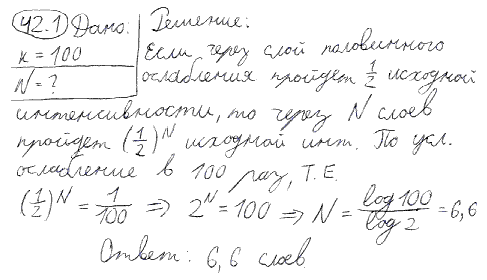 42.1 Дано: Решение:
k = 100
N = ?
Если через слой половинного
ослабления пройдет 1/2 исходной
интенсивности, то через N слоев
пройдет (1/2)^N исходной инт. По усл.
ослабление в 100 раз, Т.Е.
(1/2)^N = 1/100 ⇒ 2^N = 100 ⇒ N = log 100 / log 2 = 6,6
Ответ: 6,6 слоев